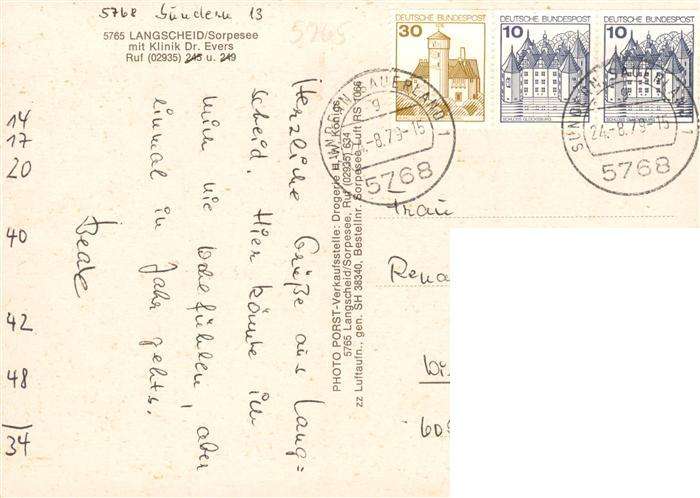 5768 Sundern 13
5765 LANGSCHEID/Sorpesee
mit Klinik Dr. Evers
Ruf (02935) 245 u. 249
5765
DEUTSCHE BUNDESPOST
30
DEUTSCHE BUNDESPOST
10
SCHLOSS GLÜCKSBURG
DEUTSCHE BUNDESPOST
10
SCHLOSS GLÜCKSBURG
SUNDERN, SAUERLAND 1
g
24.-8.79-15
5768
SUNDERN, SAUERLAND 1
24.-8.79-15
5768
Herzliche Grüße aus Lang=
scheid. Hier könnte ich
mich nie wohlfühlen, aber
einmal im Jahr gehts.
Beate
14
17
20
40
42
48
34
PHOTO PORST-Verkaufsstelle: Drogerie H. W. Königs
5765 Langscheid/Sorpesee, Ruf (02935) 634
zz Luftaufn., gen. SH 38340, Bestellnr. Sorpesee-Luft RS 1066
Frau
Rena